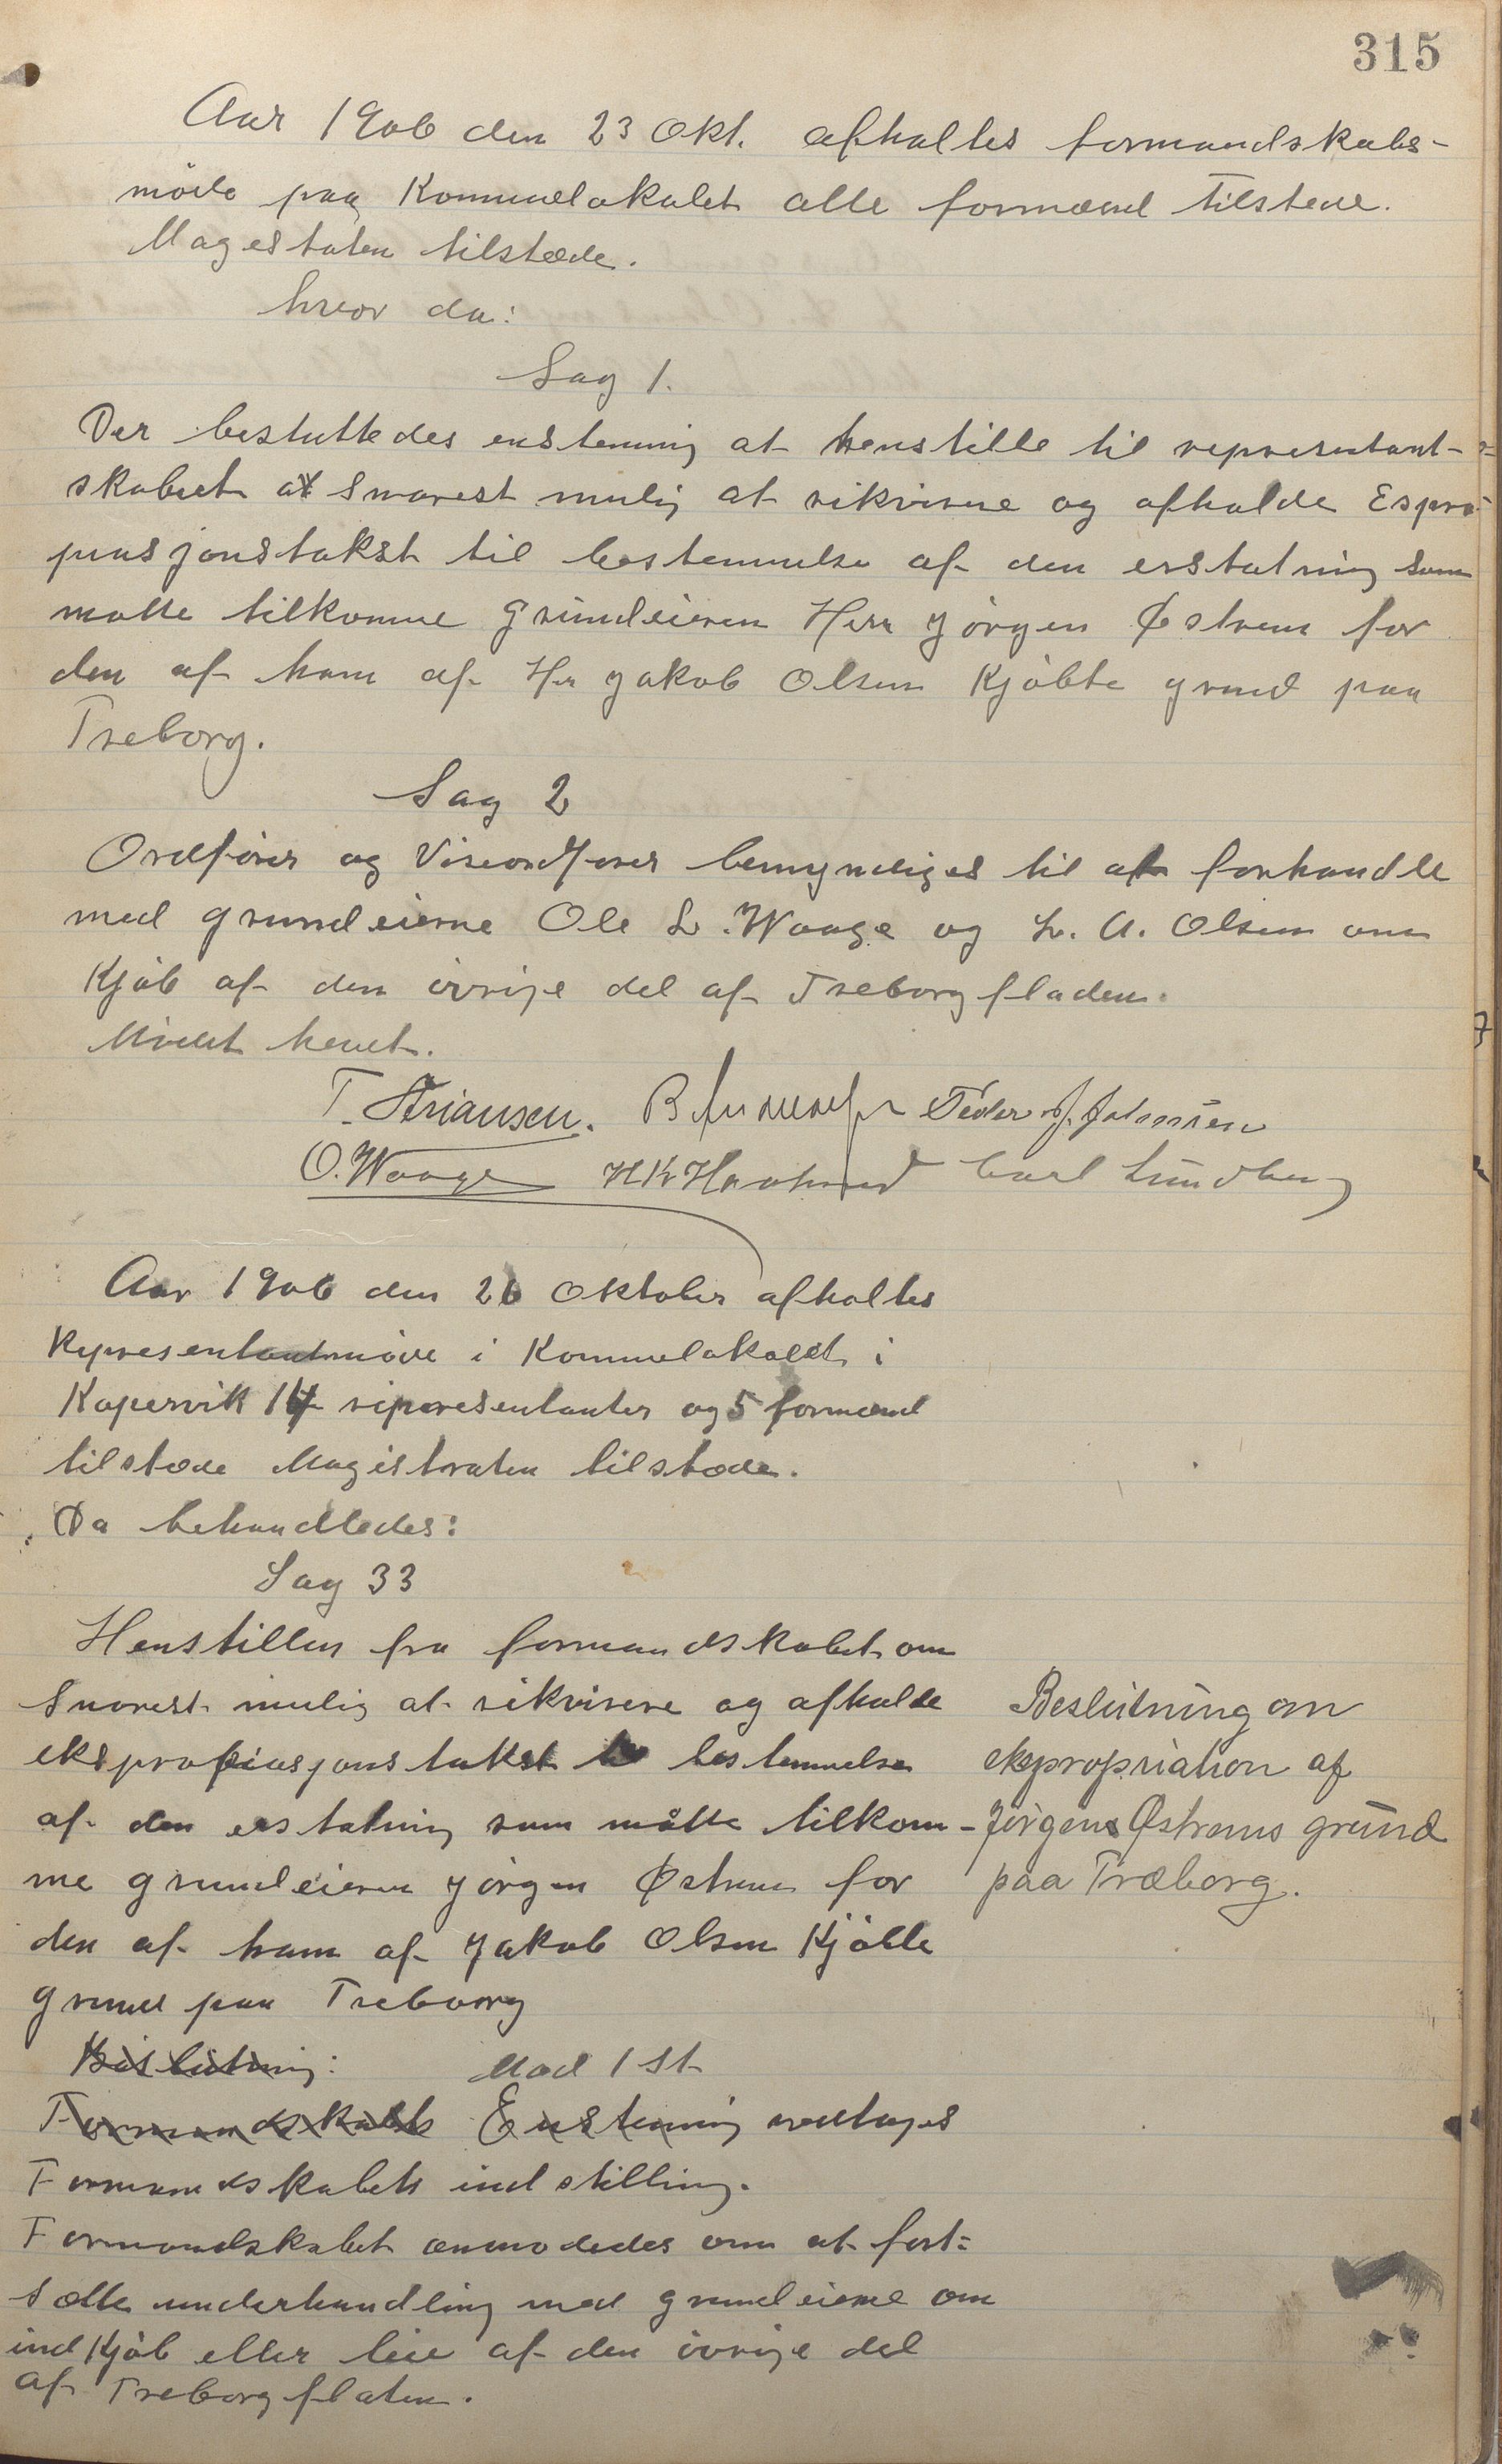 315
Aar 1906 den 23 Okt. afholtes formandskabs-
möde paa Kommuelokalet alle formænd tilstede.
Magestaten tilstæde.
hvor da:
Sag 1.
Der besluttedes enstemmig at henstille til representant-
skabet at snarest mulig at rikvirere og afholde Expro-
priasjonstakst til bestemmelse af den erstatning som
motte tilkomme grundeieren Herr Jörgen Østrem for
den af ham af Hr Jakob Olsen Kjöbte grund paa
Treborg.
Sag 2
Ordförer og Viseordförer bemyndiges til at forhandle
med grundeierne Ole L. Waage og L. A. Olsen om
Kjöb af den övrige del af Treborgfladen.
Mödet hevet.
T. Adriansen. Peder J. Johnsen
O. Waage Carl Lundberg
Aar 1906 den 26 Oktober afholtes
Representantmöde i Kommuelokalet i
Kopervik 14 representanter og 5 formænd
tilstæde Magistraten tilstæde.
Da behandledes:
Sag 33
Henstillen fra formandskabet om
snarest mulig at rikvirere og afholde
ekspropriasjonstakst bestemmelse
af den erstatning som måtte tilkom-
me grundeieren Jörgen Østrem for
den af ham af Jakob Olsen Kjöbte
grund paa Treborg
Beslutning om
ekspropriation af
Jørgens Østrems grund
paa Træborg.
Beslutning: Mod 1 st
Formandskabets Enstemmig vedtages
Formandskabets indstilling.
Formandskabet anmodedes om at fort=
sætte underhandling med grundeierne om
indkjöb eller leie af den övrige del
af Treborgflaten.